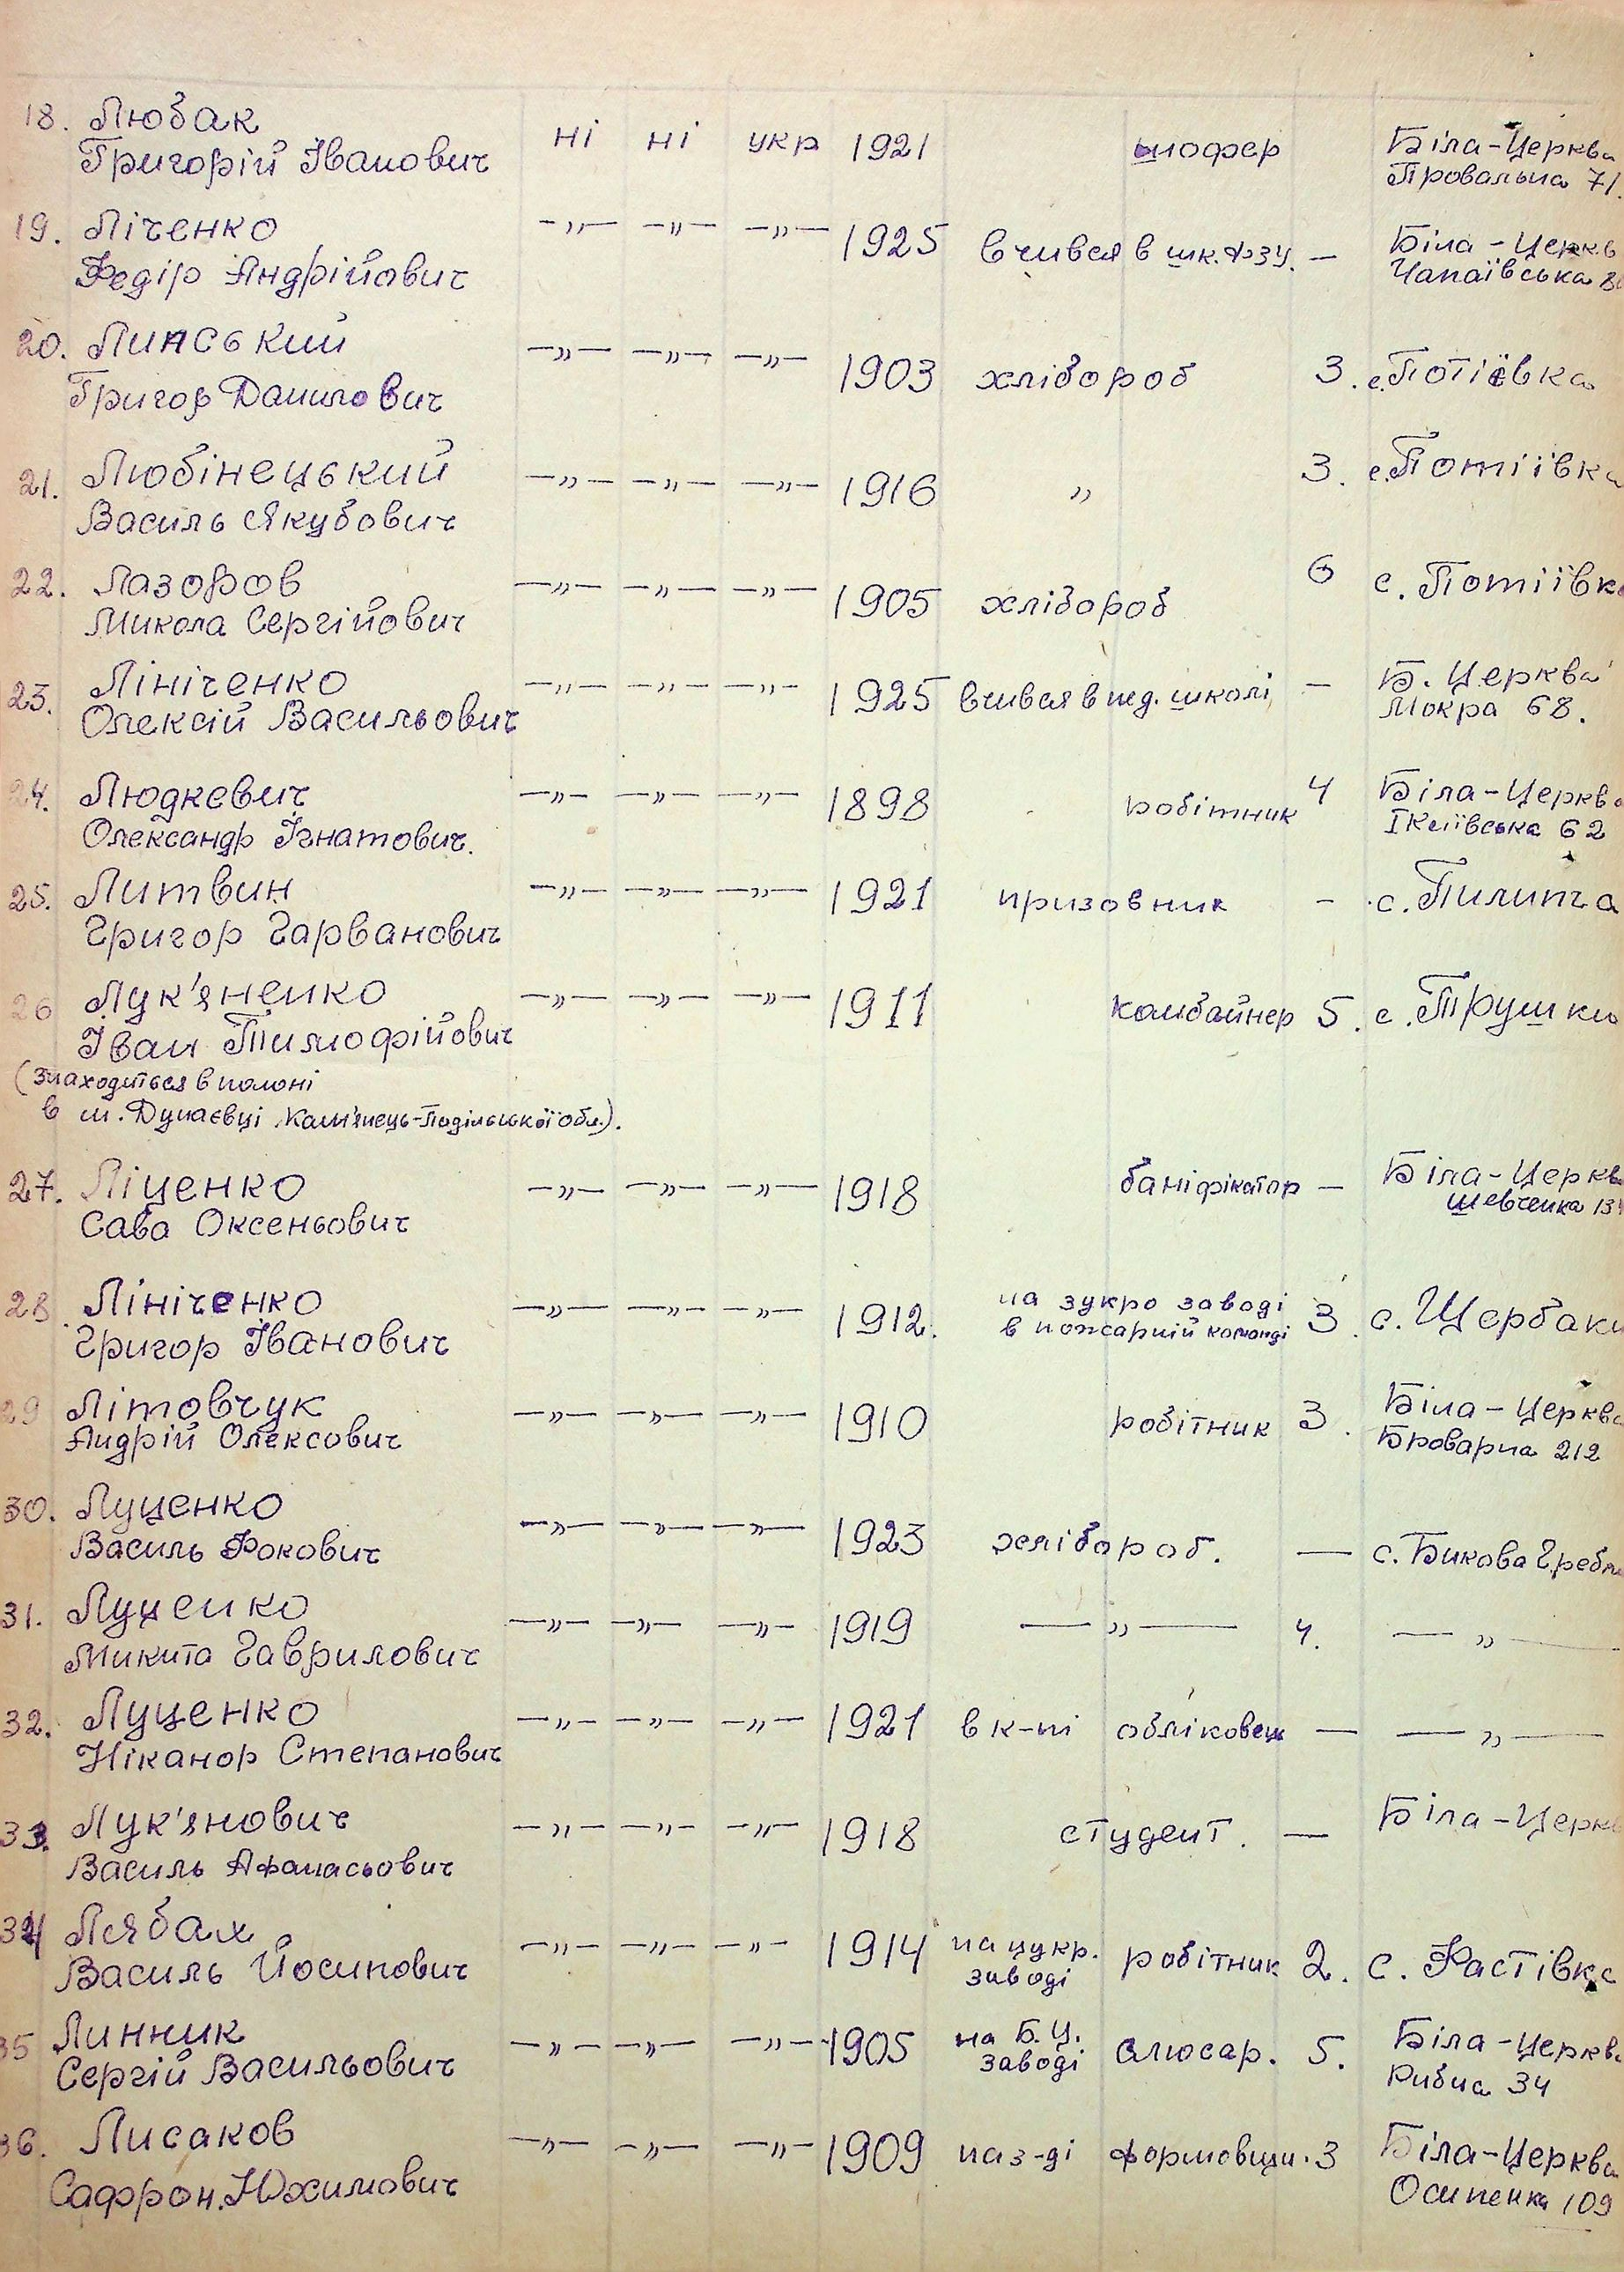 18. Любак ні ні укр 1921 шофер Біла-Церква
Григорій Іванович Провальна 71.
19. Ліченко -„- -„- -„- 1925 вчився в шк. ФЗУ. - Біла-Церкв
Федір Андрійович Чапаївська
20. Липський -„- -„- -„- 1903 хлібороб 3. с. Потіївка
Григор Данилович
21. Любінецький -„- -„- -„- 1916 „ 3. с. Потіївка
Василь Якубович
22. Лазоров -„- -„- -„- 1905 хлібороб 6 с. Потіївка
Микола Сергійович
23. Лініченко -„- -„- -„- 1925 вчився в пед. школі - Б. Церква
Олексій Васильович Мокра 68.
24. Людкевич -„- -„- -„- 1898 робітник 4 Біла-Церква
Олександр Ігнатович. І Київська 62
25. Литвин -„- -„- -„- 1921 призовник - с. Пилипча
Григор Гарванович
26 Лук'яненко -„- -„- -„- 1911 комбайнер 5. с. Трушки
Іван Тимофійович
(знаходиться в полоні
в м. Дунаєвці, Кам'янець-Подільської обл.).
27. Ліценко -„- -„- -„- 1918 боніфікатор - Біла-Церкв
Сава Оксеньович Шевченка
28 Лініченко -„- -„- -„- 1912. на зукро заводі 3. с. Щербаки
Григор Іванович в пожарній команді
29 Літовчук -„- -„- -„- 1910 робітник 3. Біла-Церква
Андрій Олексович Броварна 212
30. Луценко -„- -„- -„- 1923 хлібороб. - с. Бикова Гребля
Василь Фокович
31. Луценко -„- -„- -„- 1919 -„- 4. -„-
Микита Гаврилович
32. Луценко -„- -„- -„- 1921 в к-пі обліковець - -„-
Ніканор Степанович
33. Лук'янович -„- -„- -„- 1918 студент. - Біла-Церкв
Василь Афанасьович
34 Лябах -„- -„- -„- 1914 на цукр. робітник 2. с. Фастівка
Василь Йосипович заводі
35 Линник -„- -„- -„- 1905 на Б.Ц. слюсар. 5. Біла-Церква
Сергій Васильович заводі Рибна 34
36. Лисаков -„- -„- -„- 1909 на з-ді формовщи. 3 Біла-Церква
Сафрон Юхимович Осипенка 109